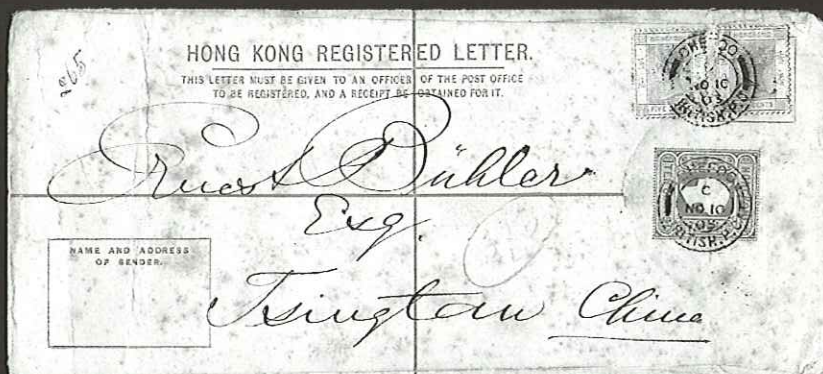 265
HONG KONG REGISTERED LETTER.
THIS LETTER MUST BE GIVEN TO AN OFFICER OF THE POST OFFICE
TO BE REGISTERED, AND A RECEIPT BE OBTAINED FOR IT.
Ernest Bühler
Esq.
NAME AND ADDRESS
OF SENDER.
Tsingtau China
C
NO 10
03
BRITISH P.O.
NO 10
03
BRITISH P.O.